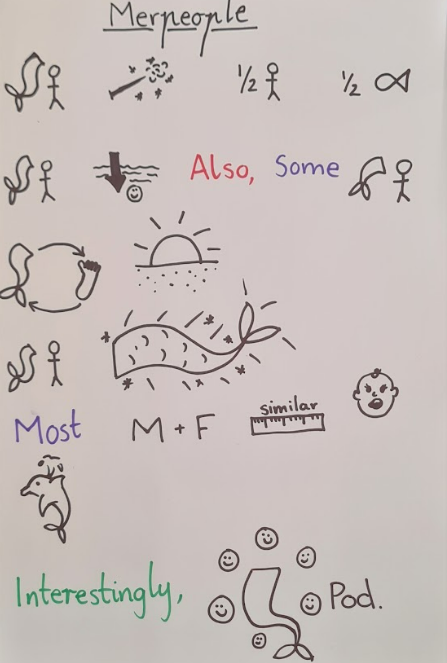 Merpeople
1/2 1/2
Also, Some
similar
Most M + F
Interestingly, Pod.